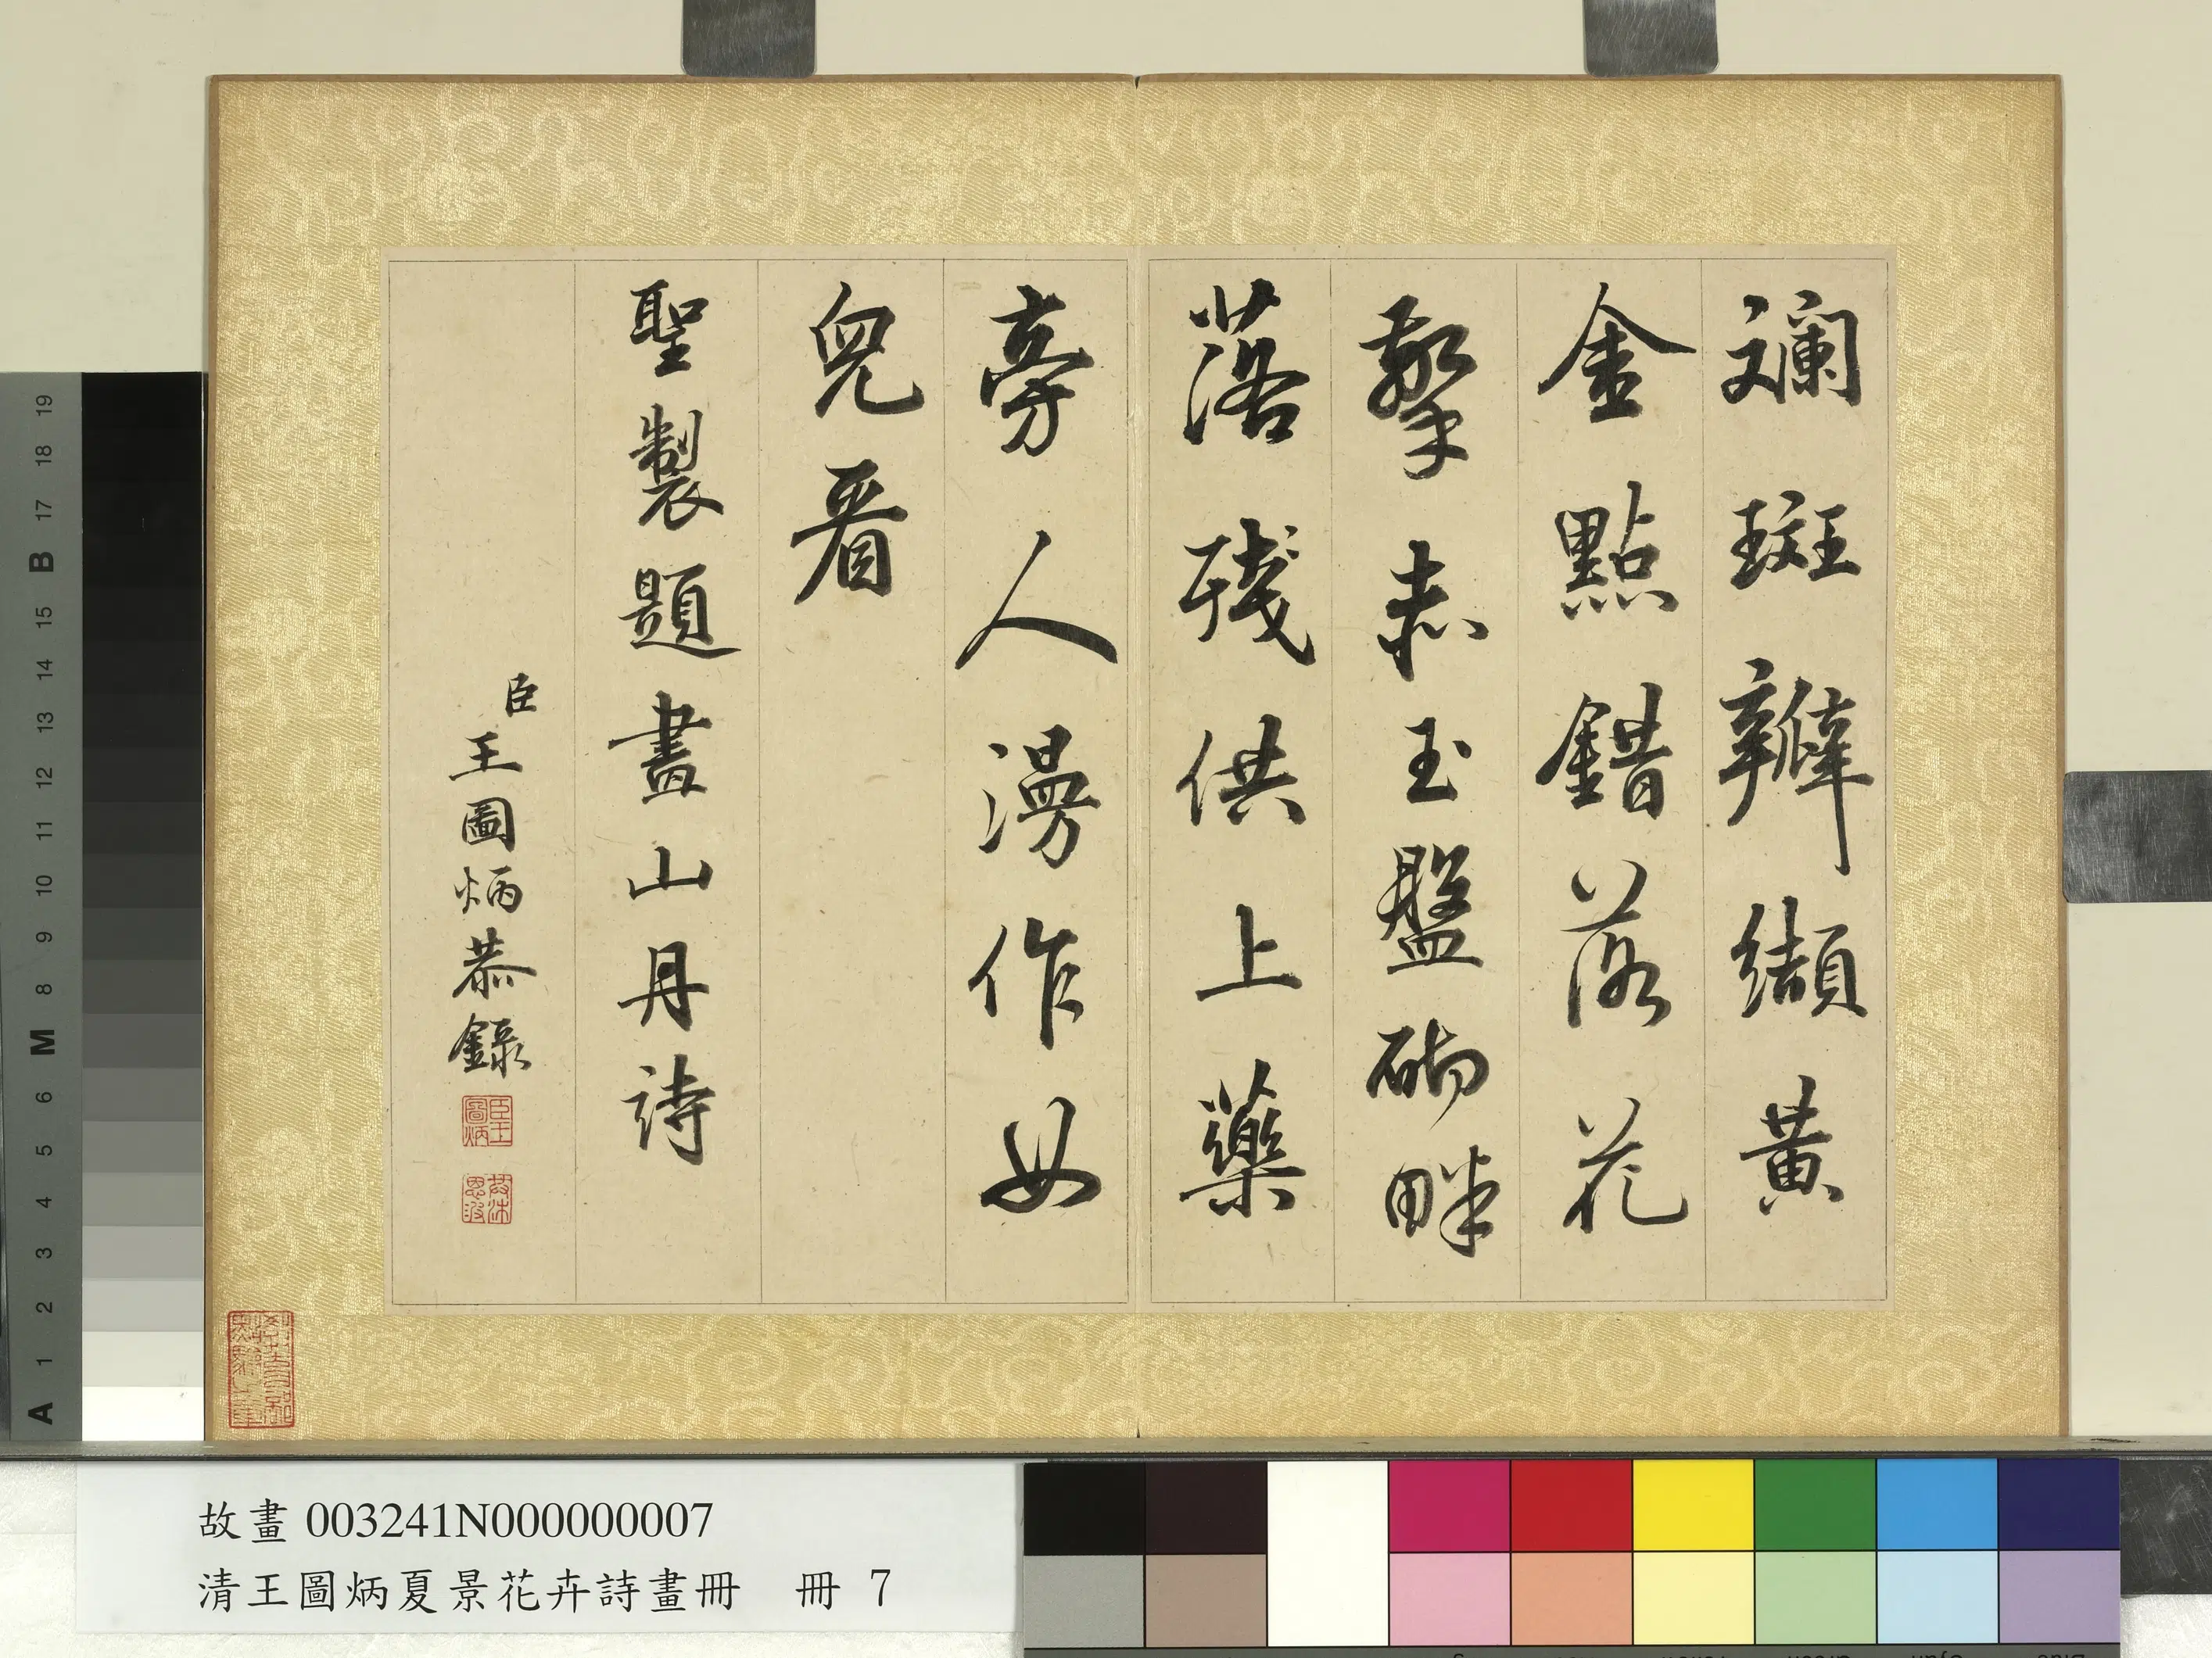 斕斑瓣纈黃
金點錯落花
擎赤玉盤砌畔
落殘供上藥
旁人漫作女
兒看
聖製題畫山丹詩
臣王圖炳恭錄
臣王圖炳
故畫 003241N000000007
清王圖炳夏景花卉詩畫冊 冊 7
19
18
17
B
15
14
13
12
11
10
9
8
M
6
5
4
3
2
1
A